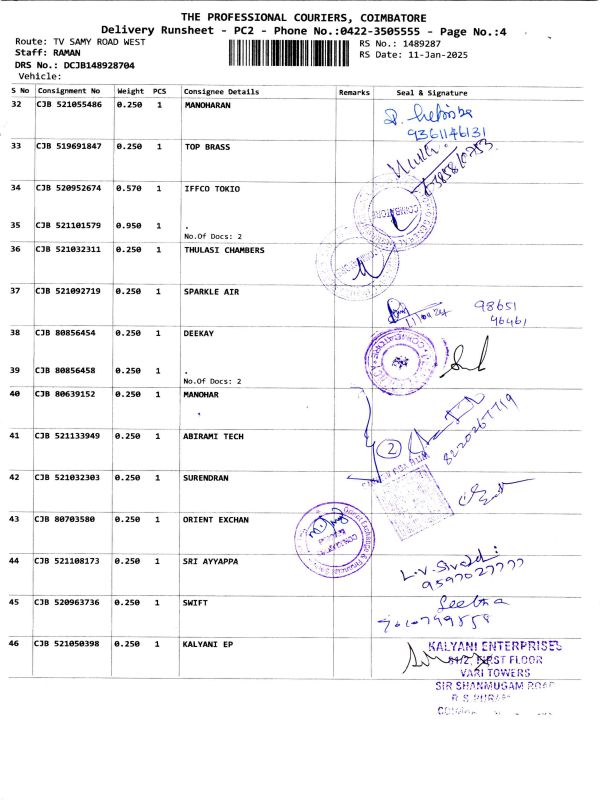 THE PROFESSIONAL COURIERS, COIMBATORE
Delivery Runsheet - PC2 - Phone No.:0422-3505555 - Page No.:4
Route: TV SAMY ROAD WEST
Staff: RAMAN
DRS No.: DCJB148928704
Vehicle:
RS No.: 1489287
RS Date: 11-Jan-2025
S No Consignment No Weight PCS Consignee Details Remarks Seal & Signature
32 CJB 521055486 0.250 1 MANOHARAN
9361146131
33 CJB 519691847 0.250 1 TOP BRASS
34 CJB 520952674 0.570 1 IFFCO TOKIO
COIMBATORE
35 CJB 521101579 0.950 1 .
No.Of Docs: 2
36 CJB 521032311 0.250 1 THULASI CHAMBERS
37 CJB 521092719 0.250 1 SPARKLE AIR
98651
46461
38 CJB 80856454 0.250 1 DEEKAY
39 CJB 80856458 0.250 1 .
No.Of Docs: 2
40 CJB 80639152 0.250 1 MANOHAR
8220267719
41 CJB 521133949 0.250 1 ABIRAMI TECH
2
42 CJB 521032303 0.250 1 SURENDRAN
43 CJB 80703580 0.250 1 ORIENT EXCHAN
44 CJB 521108173 0.250 1 SRI AYYAPPA
9597027777
45 CJB 520963736 0.250 1 SWIFT
46 CJB 521050398 0.250 1 KALYANI EP
KALYANI ENTERPRISES
FIRST FLOOR
VARI TOWERS
SIR SHANMUGAM ROAD